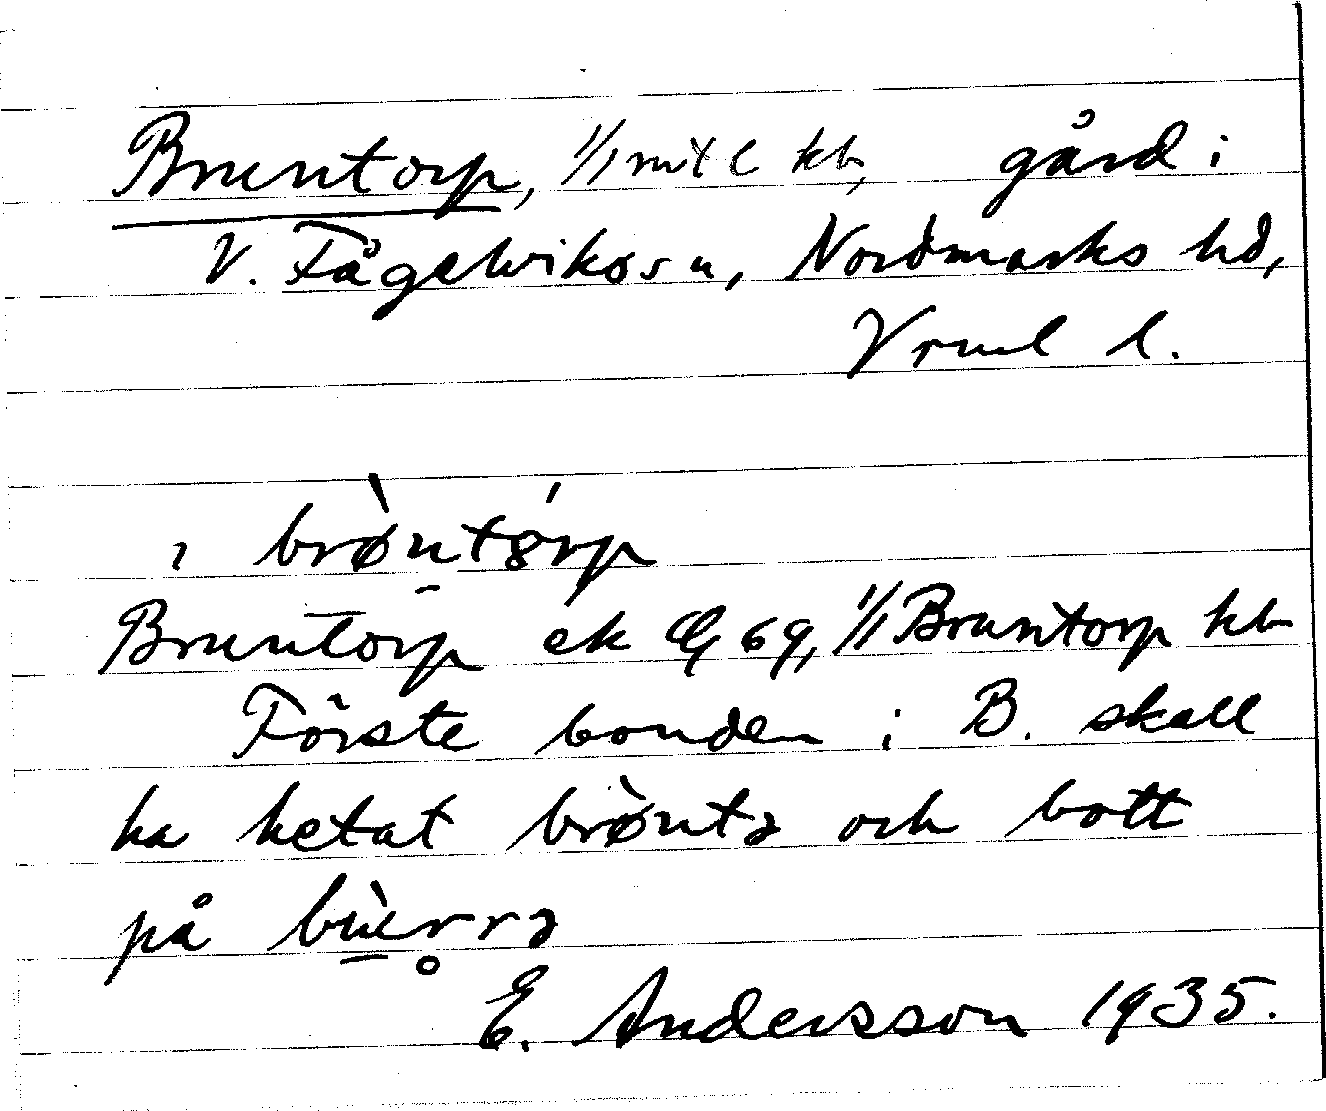 Bruntorp, 1/1 mtl kb, gård i
V. Fågelviks sn, Nordmarks hd,
Vrml l.
i brø̀ntǿrp
Bruntorp ek 69, 1/1 Bruntorp kb
Förste bonden i B. skall
ha hetat brø̀ntə och bott
på bùrrə
E. Andersson 1935.